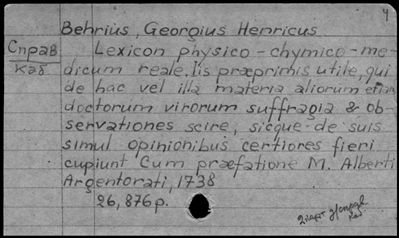 4
Behrius, Georgius Henricus
Справ
каб
Lexicon physico-chymico-me-
dicum reale. Iis præprimis utile, qui
de hac vel illa materia aliorum etiam
doctorum virorum suffragia & ob-
servationes scire, sicque de suis
simul opinionibus certiores fieri
cupiunt Cum præfatione M. Alberti
Argentorati, 1738
26, 876 p.